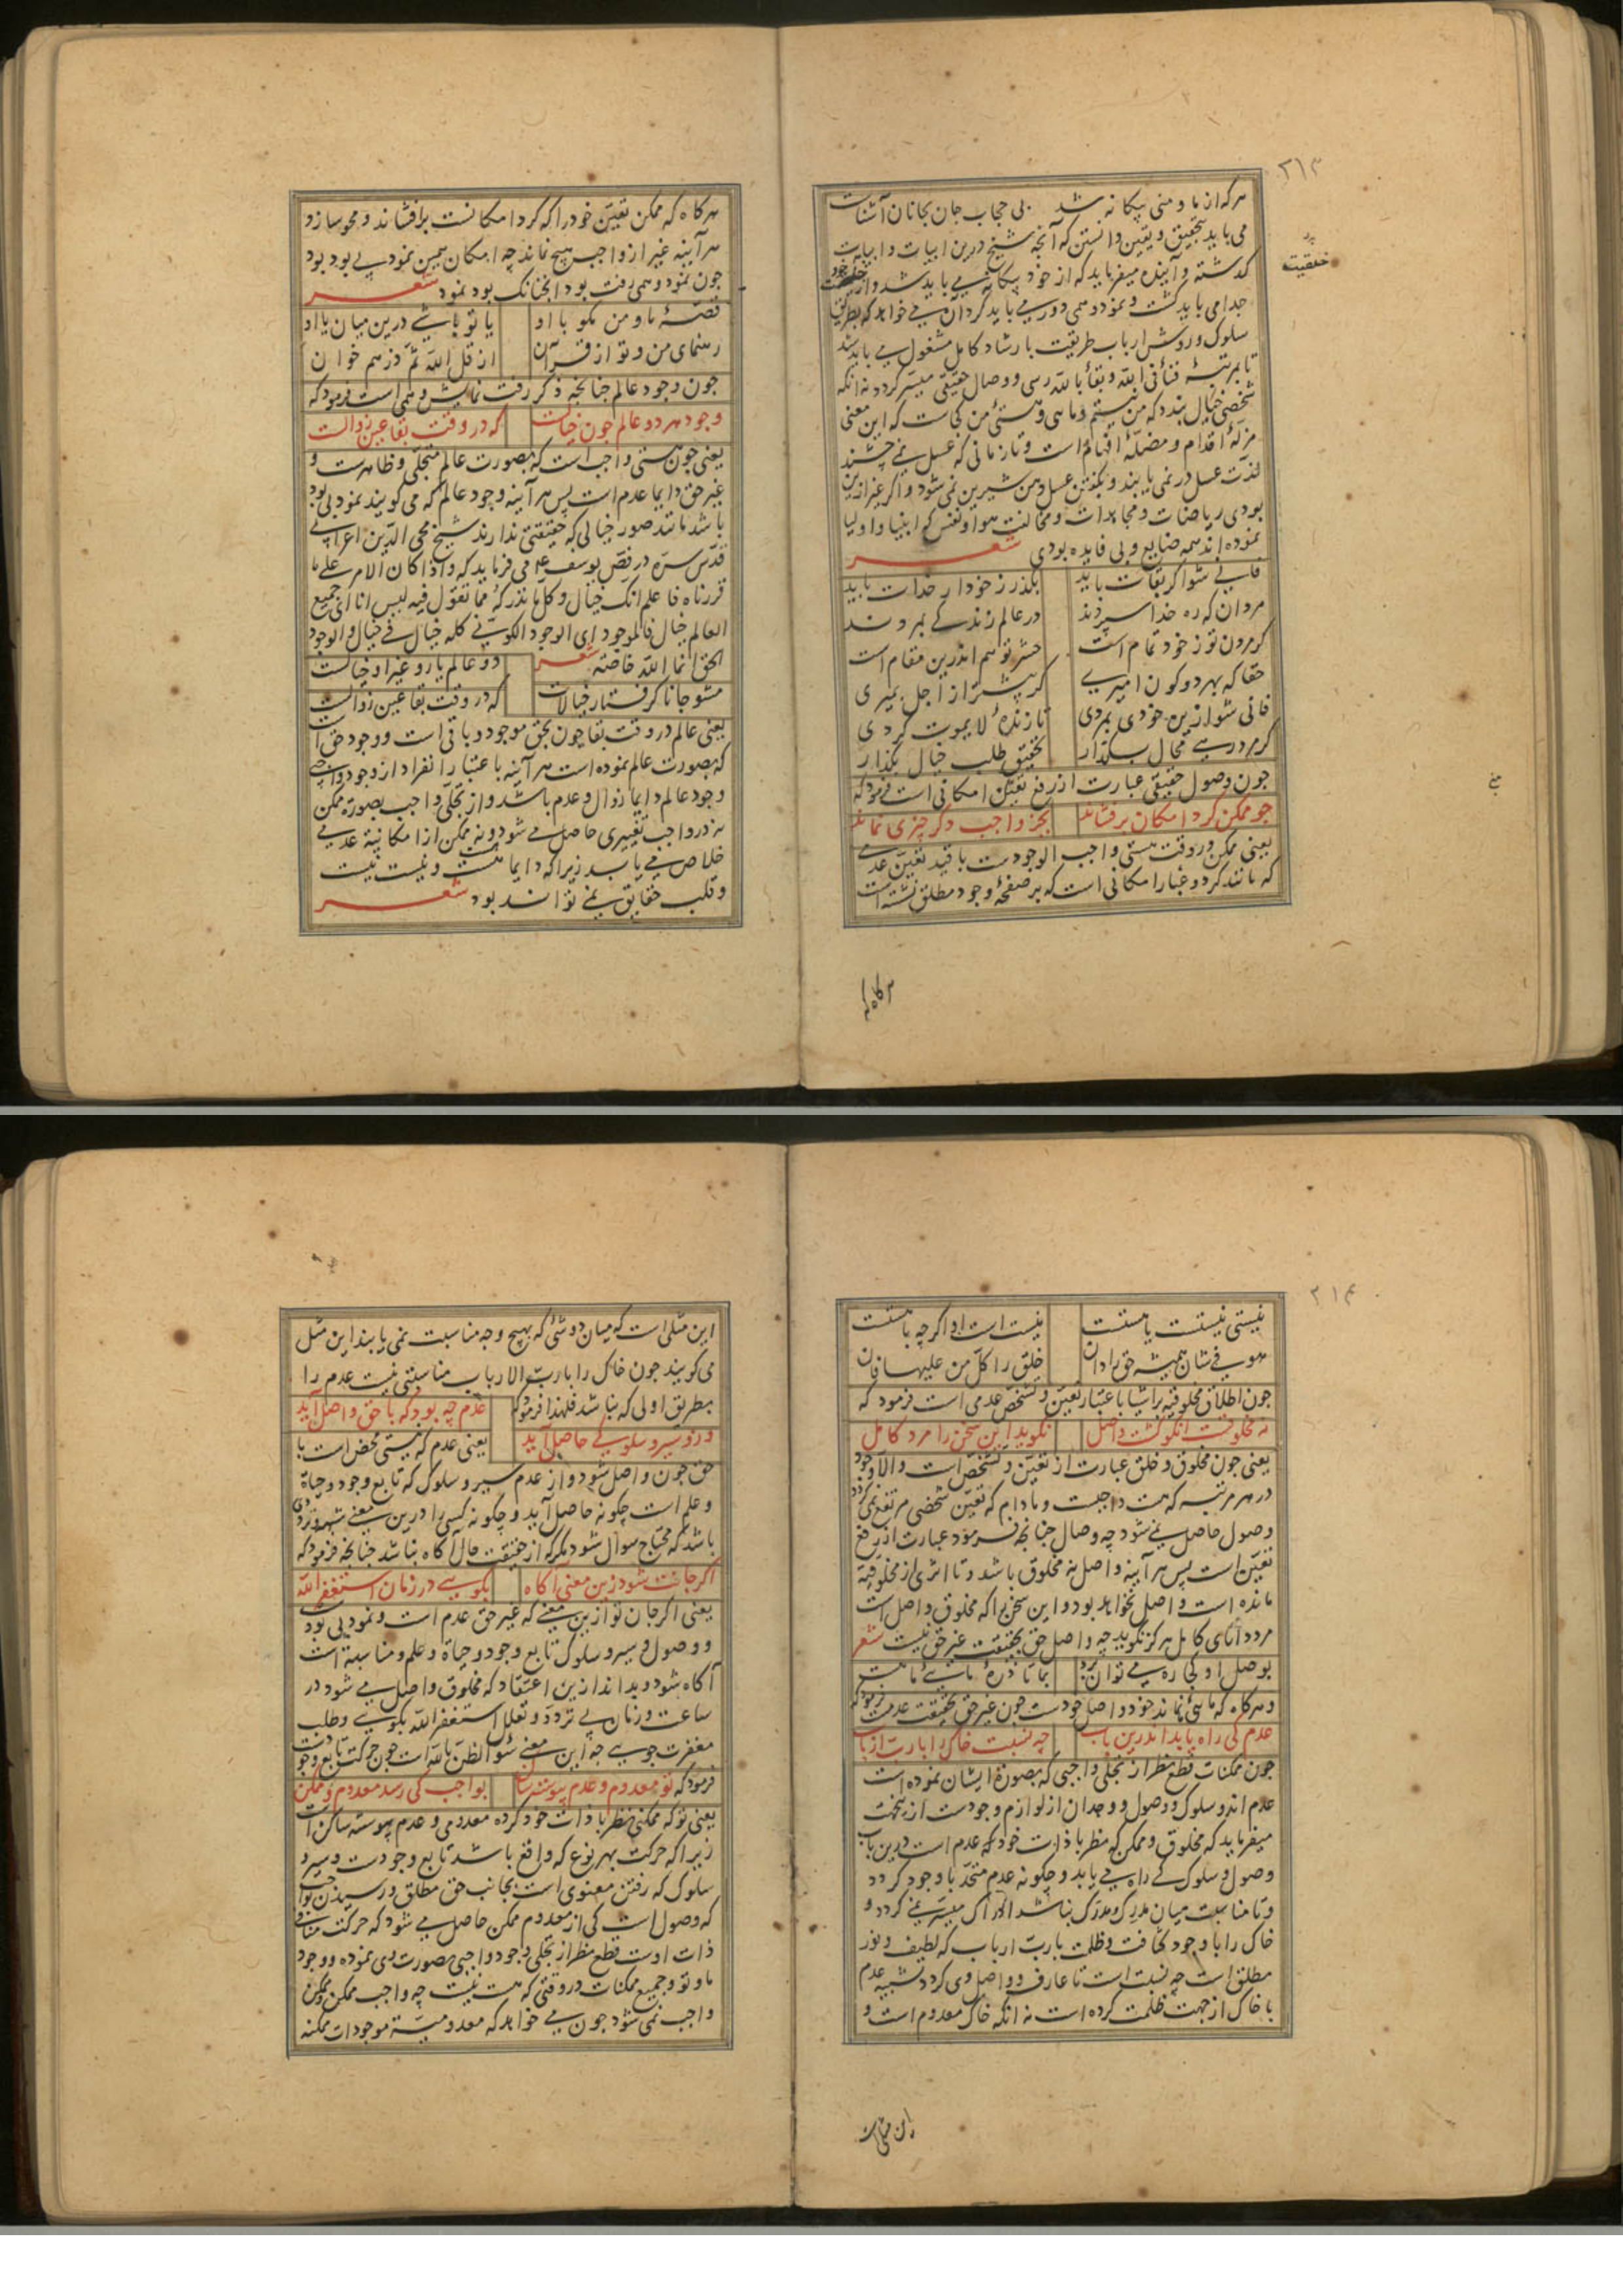 ۳۱۳
هر که از ما و منی بیکانه شد بی حجاب جان بجانان آشناست
می باید بتحقیق و یقین دانستن که آنچه شیخ درین ابیات و ابیات
کدشته و آینده میفرماید که از خود بیکانه می باید شد و از خلقیت خود
خلقیت
جدا می باید کشت و نمود وهمی دور می باید کرد آن می خواهد که بطریق
سلوک و روش ارباب طریقت بارشاد کامل مشغول می باید شد
تا بمرتبۀ فنا فی الله و بقا بالله رسی و وصال حقیقی میسر کردد نه آنکه
شخصی خیال بندد که من نیستم و ما هی و هستی من کجاست که این معنی
مزلۀ اقدام و مضلۀ افهام است و تا زمانی که عسل نمی چشند
لذت عسل در نمی یابند و بکفتن عسل دهن شیرین نمی شود و اکر غیر ازین
بودی ریاضات و مجاهدات و مخالفت هوا و نفس که انبیا و اولیا
نموده اند همه ضایع و بی فایده بودی شعر
فانی شو اکر بقات باید بکذر ز خود ار خدات باید
مردان که ره خدا سپردند در عالم زندکی بمردند
کر مردن تو ز خود تمام است حشر تو هم اندرین مقام است
حقا که بهر دو کون امیری کر پیشتر از اجل بمیری
فانی شو ازین خودی بمردی تا زندۀ لا یموت کردی
کر مرد رهی محال بکذار تحقیق طلب خیال بکذار
چون وصول حقیقی عبارت از رفع تعین امکانی است فرمود که
چو ممکن کرد امکان برفشاند بجز واجب دکر چیزی نماند
یعنی ممکن در وقت هستی واجب الوجودست با قید تعین عدمی
که مانند کرد و غبار امکانی است که بر صفحۀ وجود مطلق نشسته است
هرکاه که
هرکاه که ممکن تعین خود را که کرد امکانست برافشاند و محو سازد
هر آینه غیر از واجب هیچ نماند چه امکان همین نمود بی بود بود
چون نمود وهمی رفت بود آنچنانک بود نمود شعر
قصۀ ما و من مکو با او یا تو باشی درین میان یا او
رهنمای من و تو از قرآن از قل الله ثم ذرهم خوان
چون وجود عالم چنانچه ذکر رفت نمایش وهمی است فرمود که
وجود هر دو عالم چون خیالست که در وقت بقا عین زوالست
یعنی چون هستی واجب است که بصورت عالم متجلی و ظاهرست و
غیر حق دایما عدم است پس هر آینه وجود عالم که می کویند نمود بی بود
باشد مانند صور خیالی که حقیقتی ندارند شیخ محیی الدین اعرابی
قدس سره در فص یوسف ع می فرماید که و اذا کان الامر علی ما
قررناه فاعلم انک خیال و کل ما تدرکه مما تقول فیه لیس انا ای جمیع
العالم خیال فالموجود ای الوجود الکونی کله خیال فی خیال و الوجود
الحق انما الله خاصة شعر دو عالم یار و غیر او خیالست
مشو جانا کرفتار خیالات که در وقت بقا عین زوالست
یعنی عالم در وقت بقا چون بحق موجود و باقی است و وجود حق است
که بصورت عالم نموده است هر آینه باعتبار انفراد از وجود واجبی
وجود عالم دایما زوال و عدم باشد و از تجلی واجب بصورة ممکن
نه در واجب تغییری حاصل می شود و نه ممکن از امکانیة عدمی
خلاص می یابد زیرا که دایما هست هست و نیست نیست
و قلب حقایق نمی تواند بود شعر
۳۱۴
نیستی نیستست یا هستست نیست است او اکرچه با هستست
هو فی شان همیشه حق را دان خلق را کل من علیها فان
چون اطلاق مخلوقیة بر اشیا باعتبار تعین و تشخص عدمی است فرمود که
نه مخلوقست انکو کشت واصل نکوید این سخن را مرد کامل
یعنی چون مخلوق و خلق عبارت از تعین و تشخص است و الا وجود
در هر مرتبه که هست واجبست و مادام که تعین شخصی مرتفع نمی کردد
وصول حاصل نمی شود چه وصال چنانچه فرمود عبارت از رفع
تعین است پس هر آینه واصل نه مخلوق باشد و تا اثری از مخلوقیة
مانده است واصل نخواهد بود و این سخن را که مخلوق واصل است
مرد دانای کامل هرکز نکوید چه واصل حق بحقیقت غیر حق نیست شعر
بوصل او کجا ره می توان برد بما تا ذرۀ مایی ما هست
و هرکاه که مایی نماند خود واصل خودست چون غیر حق بحقیقت عدمست فرمود که
عدم کی راه یابد اندرین باب چه نسبت خاک را با رب ارباب
چون ممکنات قطع نظر از تجلی واجبی که بصورة ایشان نموده است
عدم اند و سلوک و وصول و وجدان از لوازم وجودست ازینجهت
میفرماید که مخلوق و ممکن که نظر با ذات خود که عدم است درین باب
وصول و سلوک کی راه می یابد و چکونه عدم متحد با وجود کردد
و تا مناسبت میان مدرک و مدرک نباشد ادراک میسر نمی کردد و
خاک را با وجود کثافت و ظلمت با رب ارباب که لطیف و نور
مطلق است چه نسبت است تا عارف و واصل وی کردد تشبیه عدم
با خاک از جهت ظلمت کرده است نه آنکه خاک معدوم است و
این مثلی است
این مثلی است که میان دو شئ که بهیچ وجه مناسبت نمی یابند این مثل
می کویند چون خاک را با رب الارباب مناسبتی نیست عدم را
بطریق اولی که نباشد فلهذا فرمود که عدم چه بود که با حق واصل آید
وزو سیر و سلوکی حاصل آید یعنی عدم که نیستی محض است با
حق چون واصل شود و از عدم سیر و سلوک که تابع وجود و حیاة
و علم است چکونه حاصل آید و چکونه کسی را درین معنی
باشد که محتاج سوال شود مکر که از حقیقت حال آکاه نباشد چنانچه فرمود که
اکر جانت شود زین معنی آکاه بکویی در زمان استغفر الله
یعنی اکر جان تو ازین معنی که غیر حق عدم است و نمود بی بود
و وصول و سیر و سلوک تابع وجود و حیاة و علم و مناسبة است
آکاه شود و بداند ازین اعتقاد که مخلوق واصل می شود در
ساعت و زمان بی تردد و تعلل استغفر الله بکویی و طلب
مغفرت جویی چه این معنی سوء الظن بالله است چون حرکت تابع وجودست
فرمود که تو معدوم و عدم پیوسته ساکن بواجب کی رسد معدوم و ممکن
یعنی تو که ممکنی نظر با ذات خود کرده معدومی و عدم پیوسته ساکن است
زیرا که حرکت بهر نوع که واقع باشد تابع وجودست و سیر و
سلوک که رفتن معنوی است بجانب حق مطلق و رسیدن بواجب
که وصول است کی از معدوم ممکن حاصل می شود که حرکت منافی
ذات اوست قطع نظر از تجلی وجود واجبی بصورت وی نموده و وجود
ما و تو و جمیع ممکنات در وقتی که هست نیست چه واجب ممکن و ممکن
واجب نمی شود چون می خواهد که معدومیة موجودات ممکنه